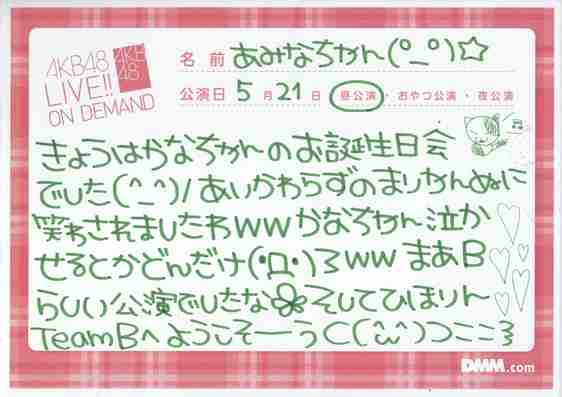 AKB48
LIVE!!
ON DEMAND
AKB
48
名前 あみなちゃん(°_°)☆
公演日 5月21日 昼公演・おやつ公演・夜公演
きょうはかなちゃんのお誕生日会
でした(^_^)/あいかわらずのまりやんぬに
笑わされましたわWWかなちゃん泣か
せるとかどんだけ(°Д°)ろWWまあB
らしい公演でしたな❀そしてひほりん
TeamBへようこそーうC(^ω^)つここミ
DMM.com